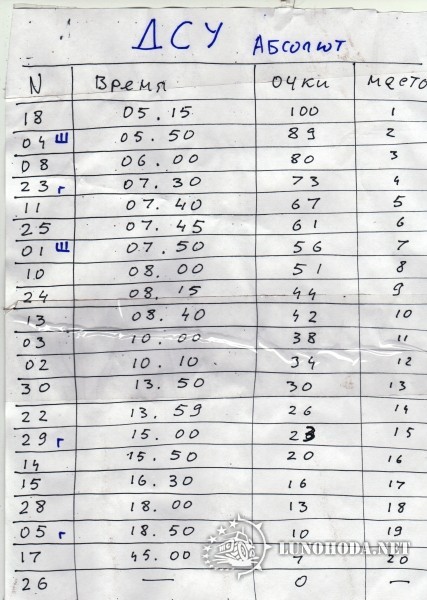 ДСУ Абсолют
N Время очки место
18 05.15 100 1
04 ш 05.50 89 2
08 06.00 80 3
23 г 07.30 73 4
11 07.40 67 5
25 07.45 61 6
01 ш 07.50 56 7
10 08.00 51 8
24 08.15 44 9
13 08.40 42 10
03 10.00 38 11
02 10.10 34 12
30 13.50 30 13
22 13.59 26 14
29 г 15.00 23 15
14 15.50 20 16
15 16.30 16 17
28 18.00 13 18
05 г 18.50 10 19
17 45.00 7 20
26 — 0 —
LUNOHODA.NET